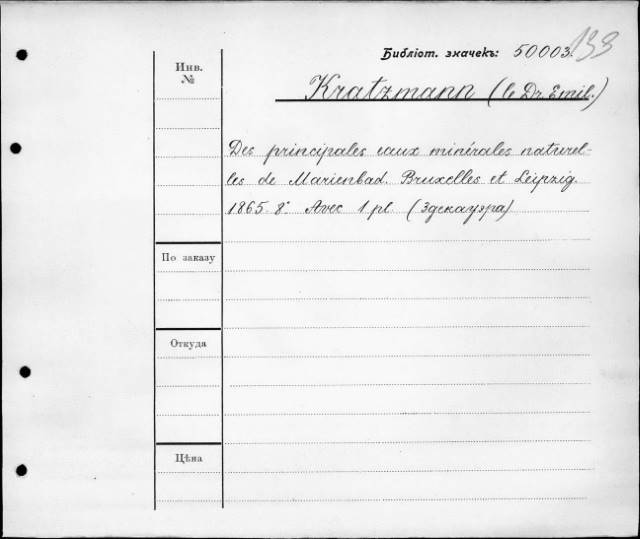 Библіот. значекъ: 50003. 133
Инв. №
Kratzmann (le Dr. Emil.)
Des principales eaux minérales naturel-
les de Marienbad. Bruxelles et Leipzig.
1865. 8°. Avec 1 pl. (Здекауэра)
По заказу
Откуда
Цѣна